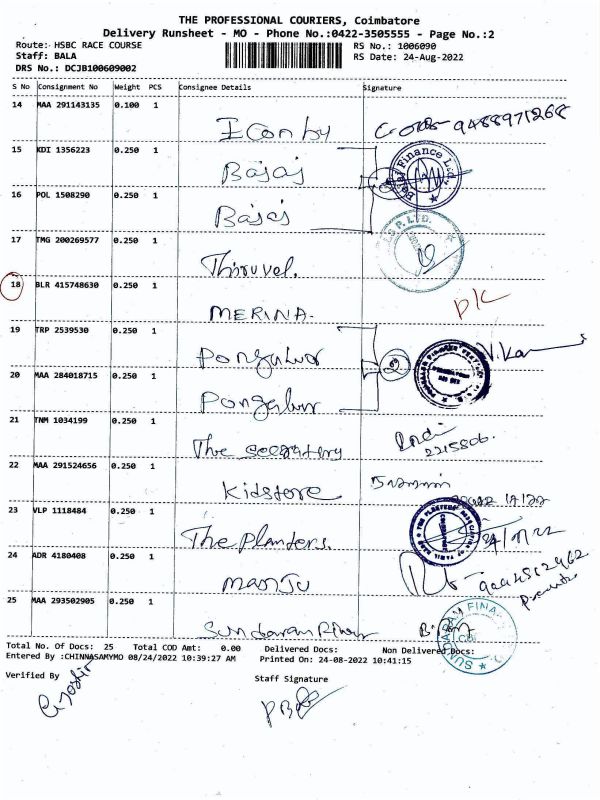 THE PROFESSIONAL COURIERS, Coimbatore
Delivery Runsheet - MO - Phone No.:0422-3505555 - Page No.:2
Route: HSBC RACE COURSE RS No.: 1006090
Staff: BALA RS Date: 24-Aug-2022
DRS No.: DCJB100609002
S No Consignment No Weight PCS Consignee Details Signature
14 MAA 291143135 0.100 1
9488971268
15 KDI 1356223 0.250 1
Bajaj Bajaj Finance Ltd
16 POL 1508290 0.250 1
Bajaj
17 TMG 200269577 0.250 1 P. LTD.
Thiruvel.
18 BLR 415748630 0.250 1
MERINA. D/C
19 TRP 2539530 0.250 1
20 MAA 284018715 0.250 1
21 TNM 1034199 0.250 1
The secretery 2215806.
22 MAA 291524656 0.250 1
Kidstore
23 VLP 1118484 0.250 1
The Planters.
24 ADR 4180408 0.250 1
MANJU
25 MAA 293502905 0.250 1
SUNDARAM FINA
Total No. Of Docs: 25 Total COD Amt: 0.00 Delivered Docs: Non Delivered Docs:
Entered By :CHINNASAMYMO 08/24/2022 10:39:27 AM Printed On: 24-08-2022 10:41:15
Verified By Staff Signature